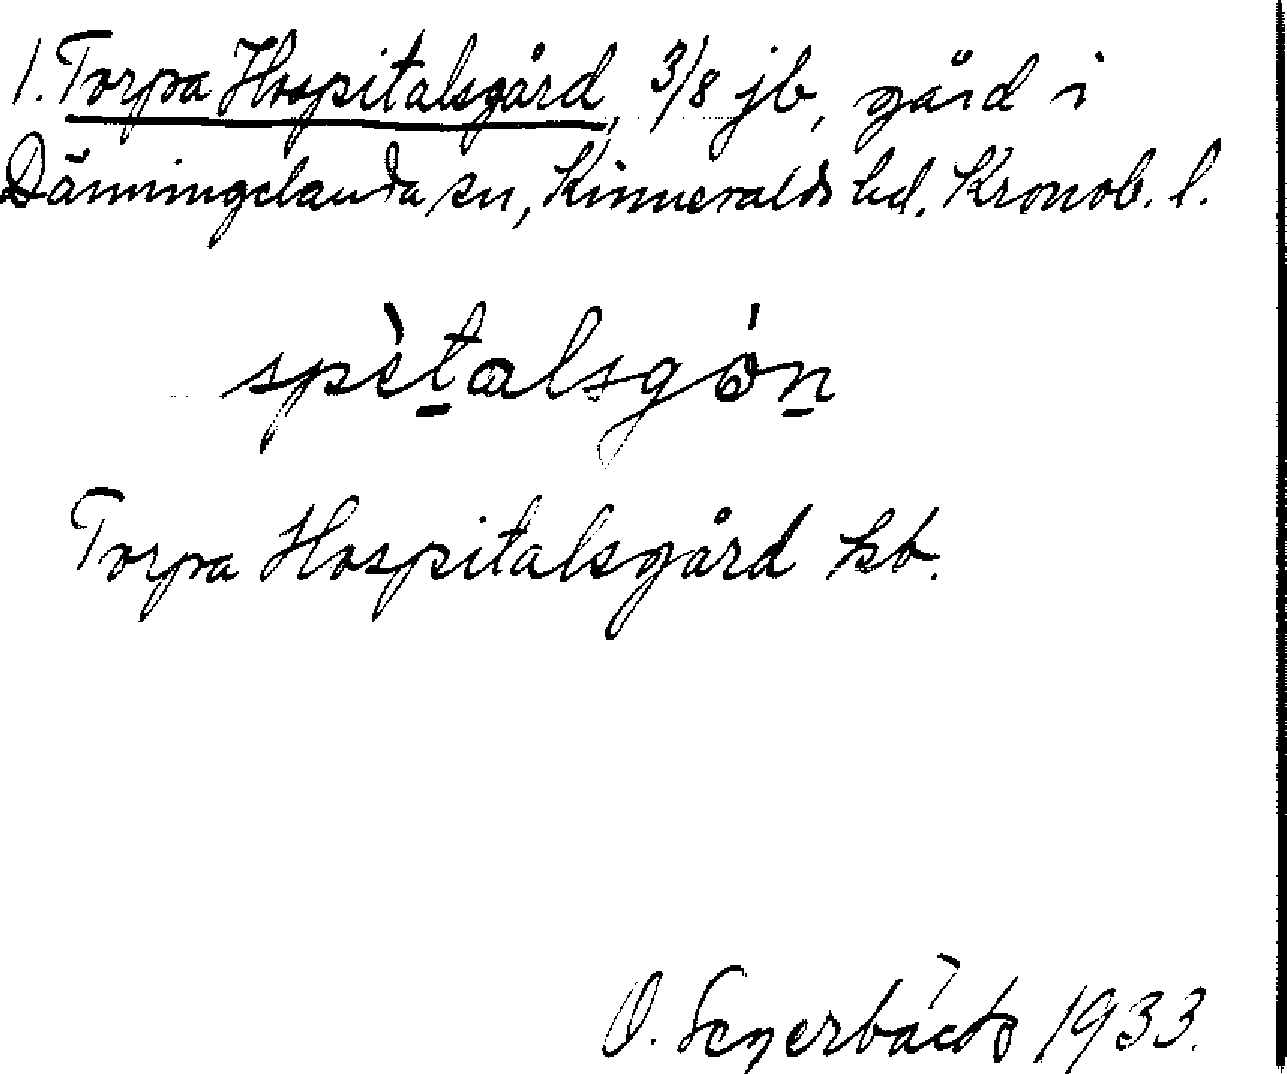 1. Torpa Hospitalsgård, 3/8 jb, gård i
Dänningelanda sn, Kinnevalds hd. Kronob. l.
spètalsgón
Torpa Hospitalsgård kb.
O. Segerbäck 1933.